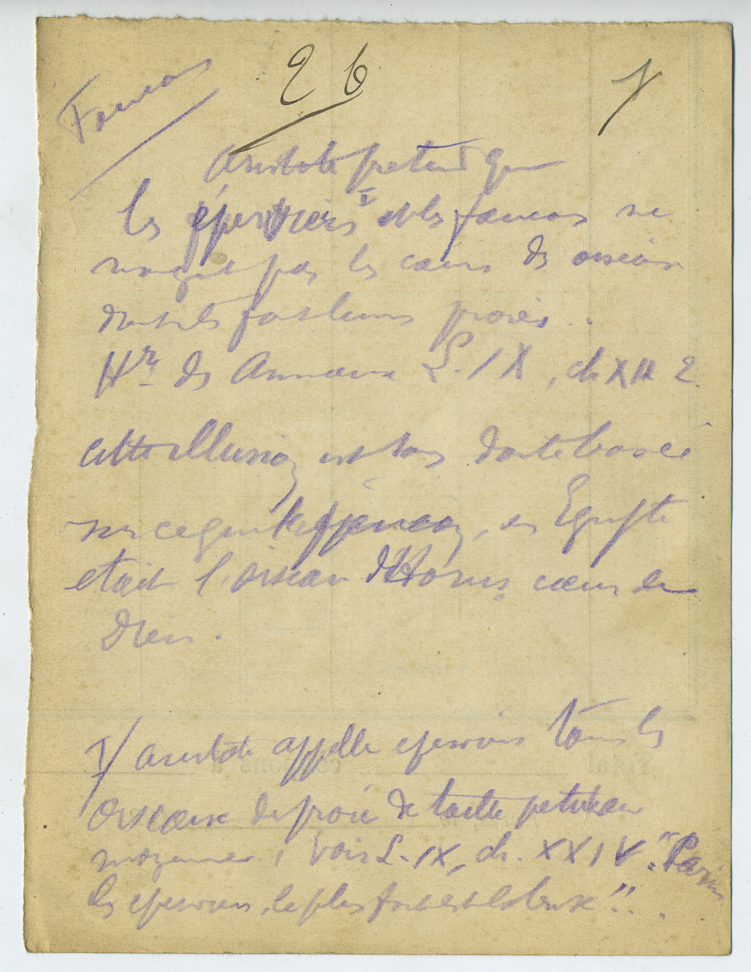 Faucon
26
Aristote prétend que
les éperviers I et les faucons ne
mangent pas les cœurs des oiseaux
dont ils font leurs proies.
Hre des Animaux L. IX, ch XII 2.
Cette illusion est sans doute basée
sur ce que le faucon, en Egypte
était l'oiseau d'Horus, cœur de
Dieu.
I/ Aristote appelle éperviers tous les
oiseaux de proie de taille petite ou
moyenne; voir L. IX, ch. XXIV. "Parmi
les éperviers, le plus fort est la buse"..